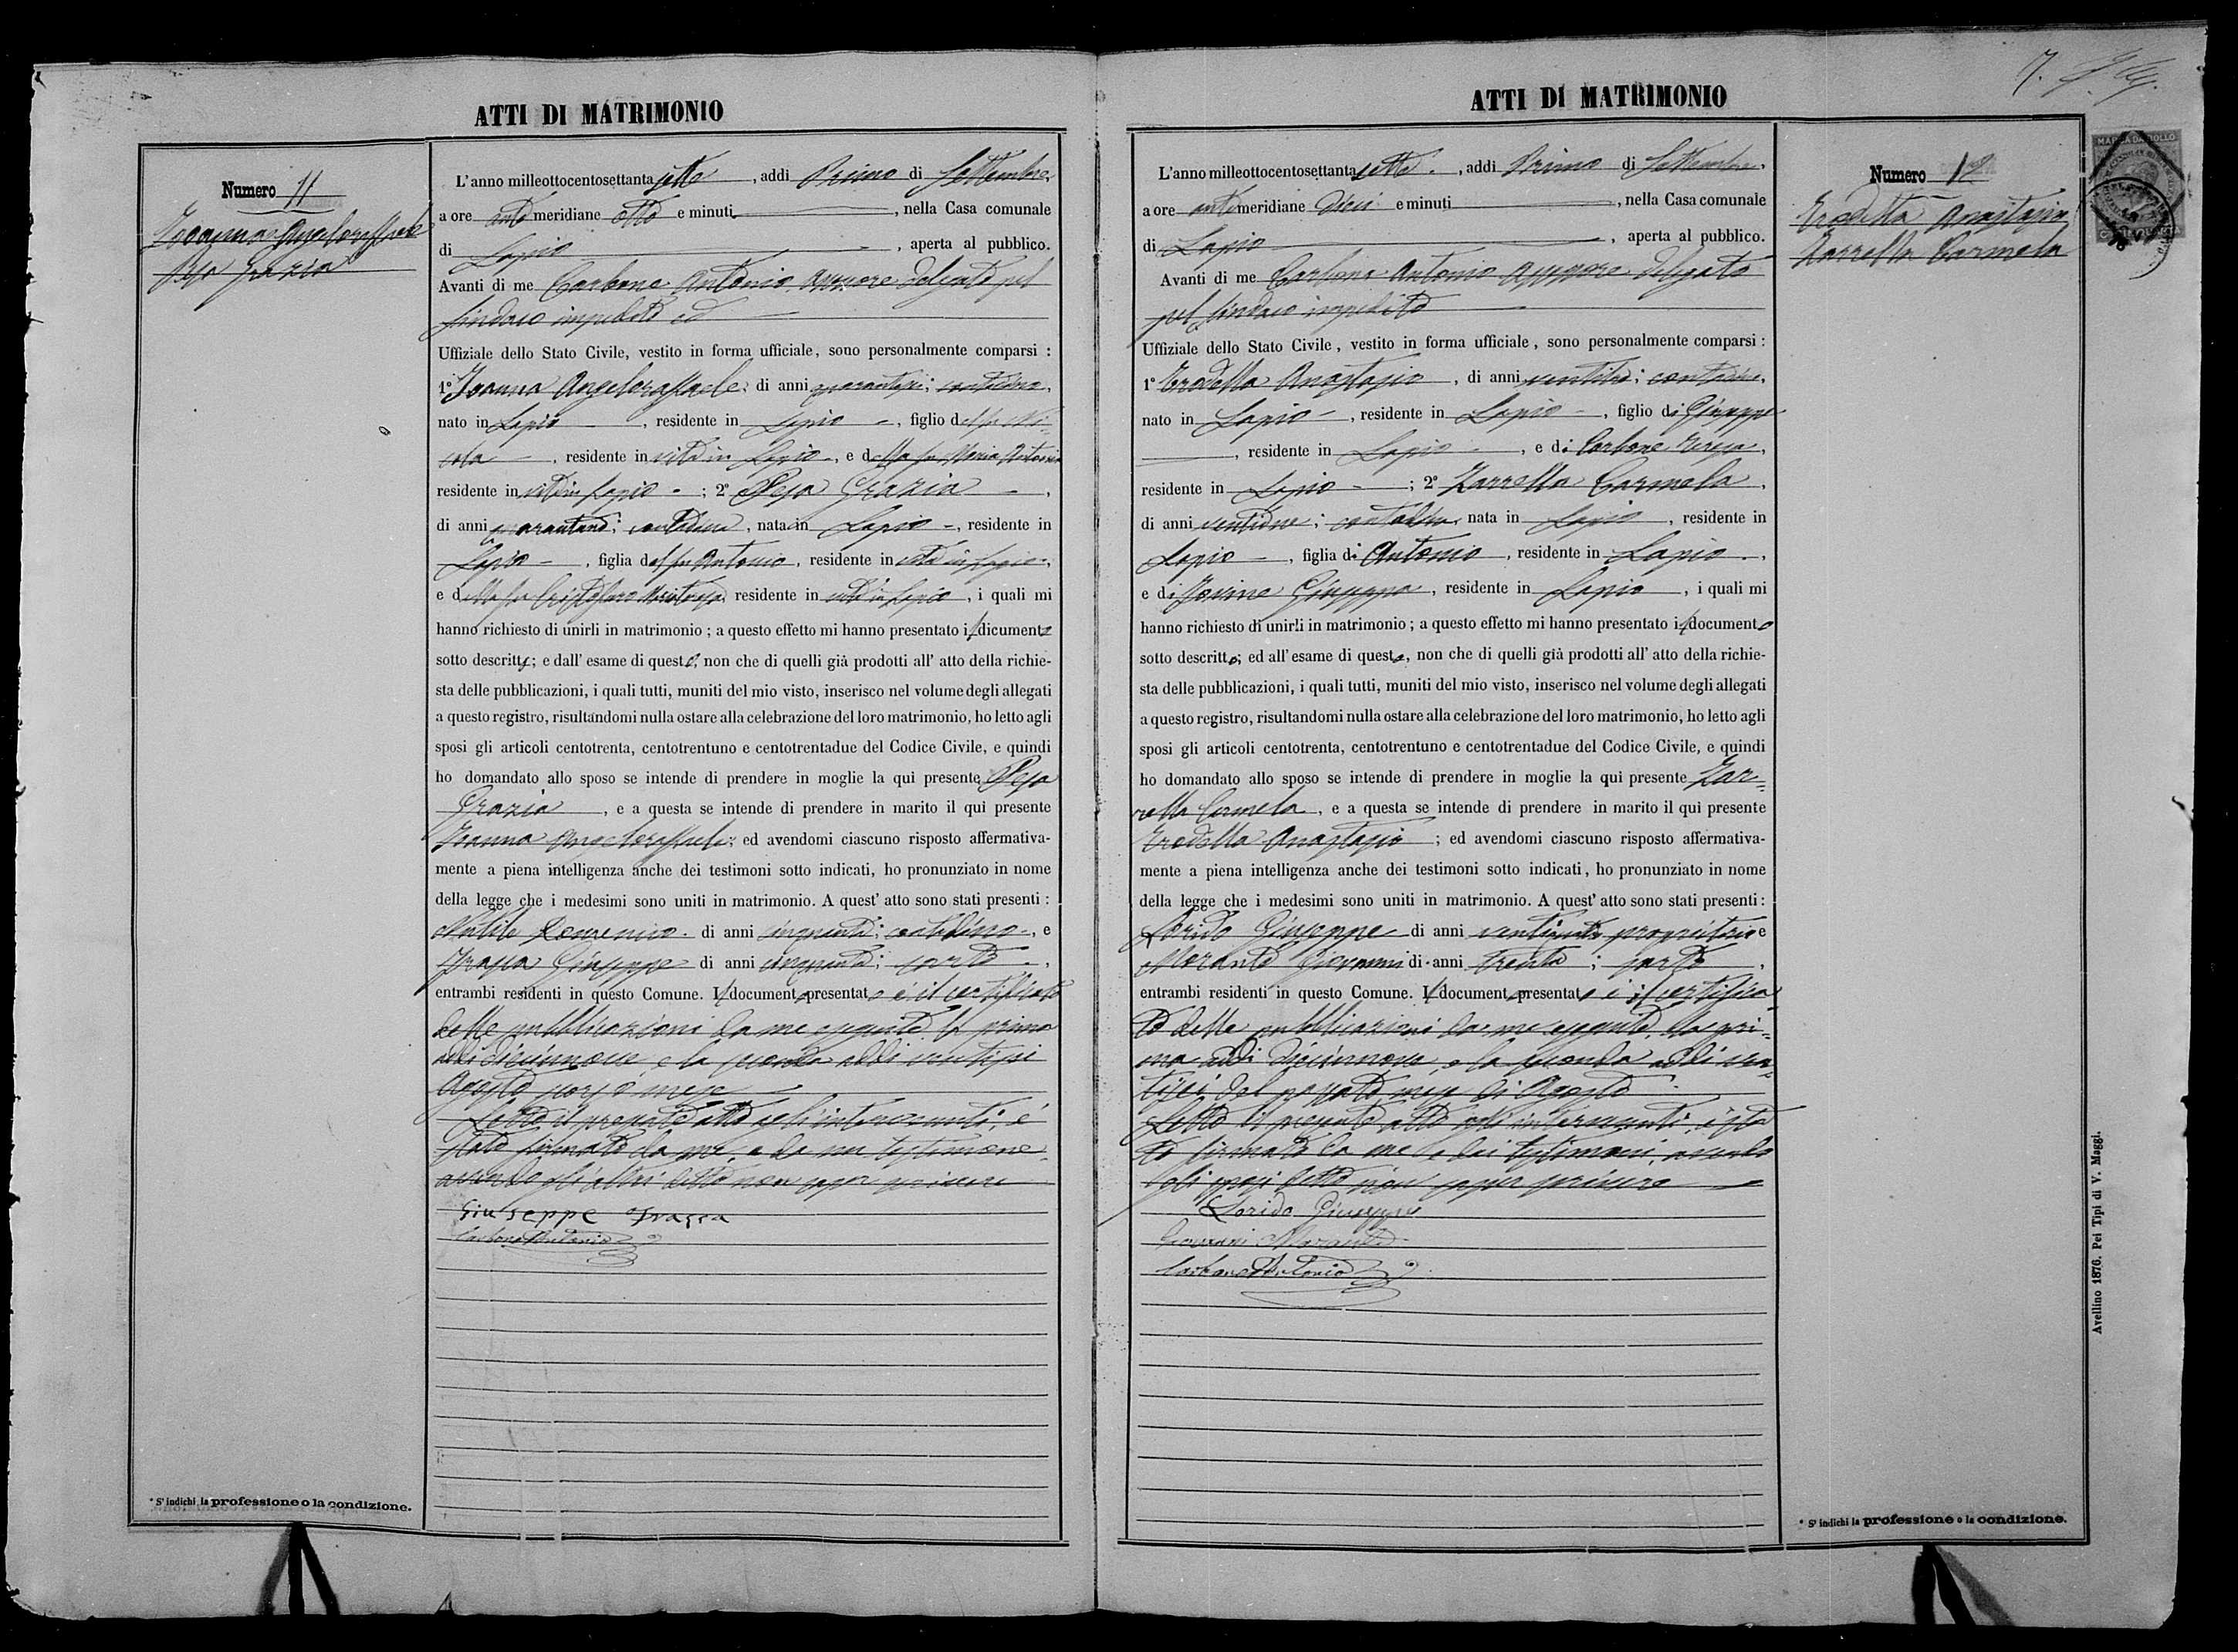 ATTI DI MATRIMONIO
Numero 11
Angeloraffaele
Grazia
L'anno milleottocentosettantasette, addi Primo di Settembre,
a ore antimeridiane otto e minuti, nella Casa comunale
di Lapio, aperta al pubblico.
Avanti di me Carbone Antonio Assessore delegato pel
Sindaco impedito ed
Uffiziale dello Stato Civile, vestito in forma ufficiale, sono personalmente comparsi :
1° Ioanna Angeloraffaele, di anni quarantasei; contadino,
nato in Lapio, residente in Lapio, figlio del fu Ni-
cola, residente in vita in Lapio, e della fu Maria Antonia
residente in vita in Lapio ; 2° Pepa Grazia,
di anni quarantuno; contadina, nata in Lapio, residente in
Lapio, figlia del fu Antonio, residente in vita in Lapio,
e della fu Cristofaro residente in vita in Lapio, i quali mi
hanno richiesto di unirli in matrimonio ; a questo effetto mi hanno presentato il dicumento
sotto descritto; e dall' esame di questo, non che di quelli già prodotti all' atto della richie-
sta delle pubblicazioni, i quali tutti, muniti del mio visto, inserisco nel volume degli allegati
a questo registro, risultandomi nulla ostare alla celebrazione del loro matrimonio, ho letto agli
sposi gli articoli centotrenta, centotrentuno e centotrentadue del Codice Civile, e quindi
ho domandato allo sposo se intende di prendere in moglie la qui presente Pepa
Grazia, e a questa se intende di prendere in marito il qui presente
Ioanna Angeloraffaele; ed avendomi ciascuno risposto affermativa-
mente a piena intelligenza anche dei testimoni sotto indicati, ho pronunziato in nome
della legge che i medesimi sono uniti in matrimonio. A quest' atto sono stati presenti :
Domenico di anni cinquanta; contadino, e
Giuseppe di anni cinquanta; sarto,
entrambi residenti in questo Comune. Il documento presentato è il certificato
delle pubblicazioni da me eseguite la prima
addi diciannove e la seconda addi ventisei
Agosto scorso mese
Letto il presente atto agl'intervenuti, è
stato firmato da me, e da un testimone
avendo gli altri detto non saper scrivere
Giuseppe
Carbone Antonio
* S' indichi la professione o la condizione.
ATTI DI MATRIMONIO
7.
Numero 12
Trodella Anastasio
Zarrella Carmela
L'anno milleottocentosettantasette, addi Primo di Settembre,
a ore antimeridiane dieci e minuti, nella Casa comunale
di Lapio, aperta al pubblico.
Avanti di me Carbone Antonio Assessore delegato
pel Sindaco impedito
Uffiziale dello Stato Civile, vestito in forma ufficiale, sono personalmente comparsi :
1° Trodella Anastasio, di anni; contadino,
nato in Lapio, residente in Lapio, figlio di Giuseppe
, residente in Lapio, e di Carbone Teresa,
residente in Lapio ; 2° Zarrella Carmela,
di anni ventidue; contadina, nata in Lapio, residente in
Lapio, figlia di Antonio, residente in Lapio,
e di Iovine Giuseppa, residente in Lapio, i quali mi
hanno richiesto di unirli in matrimonio ; a questo effetto mi hanno presentato il documento
sotto descritto; ed all' esame di questo, non che di quelli già prodotti all' atto della richie-
sta delle pubblicazioni, i quali tutti, muniti del mio visto, inserisco nel volume degli allegati
a questo registro, risultandomi nulla ostare alla celebrazione del loro matrimonio, ho letto agli
sposi gli articoli centotrenta, centotrentuno e centotrentadue del Codice Civile, e quindi
ho domandato allo sposo se intende di prendere in moglie la qui presente Zar-
rella Carmela, e a questa se intende di prendere in marito il qui presente
Trodella Anastasio ; ed avendomi ciascuno risposto affermativa-
mente a piena intelligenza anche dei testimoni sotto indicati, ho pronunziato in nome
della legge che i medesimi sono uniti in matrimonio. A quest' atto sono stati presenti :
Lorido Giuseppe di anni proprietario e
Morante Giovanni di anni trenta ; sarto,
entrambi residenti in questo Comune. Il documento presentato è il certifica-
to delle pubblicazioni da me eseguite, la pri-
ma addi diciannove, e la seconda addi ven-
tisei del passato mese di Agosto
Letto il presente atto agli intervenuti, è sta-
to firmato da me e dai testimoni, avendo
gli sposi detto non saper scrivere
Lorido Giuseppe
Giovanni Morante
Carbone Antonio
* S' indichi la professione o la condizione.
MARCA DA BOLLO
Avellino 1876. Pei Tipi di V. Maggi.